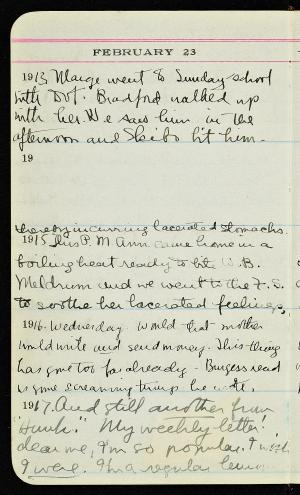 FEBRUARY 23
1913 Marge went to Sunday school
with Dot. Bradford walked up
with her. We saw him in the
afternoon and Skibo bit him.
19
thereby incurring lacerated stomachs.
1915 This P.M. Ann came home in a
boiling heat ready to bite W. B.
Meldrum and we went to the F. S.
to soothe her lacerated feelings.
1916. Wednesday. Would that mother
would write and send money. This thing
has gone too far already - Burgess read
us some screaming things he wrote.
1917. And still another from
"Hunk." "My weekly letter."
dear me, I'm so popular. I wish
I were. I'm a regular